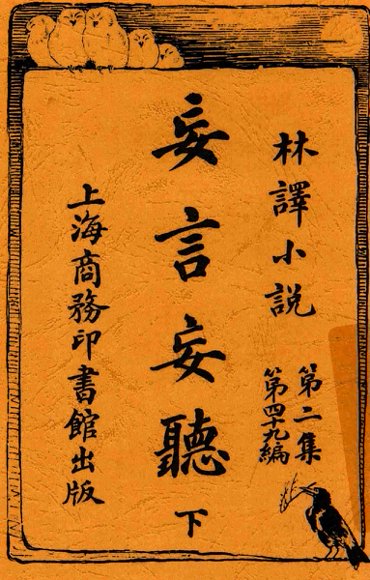 林譯小說
第二集
第四十九編
妄言妄聽
下
上海商務印書館出版